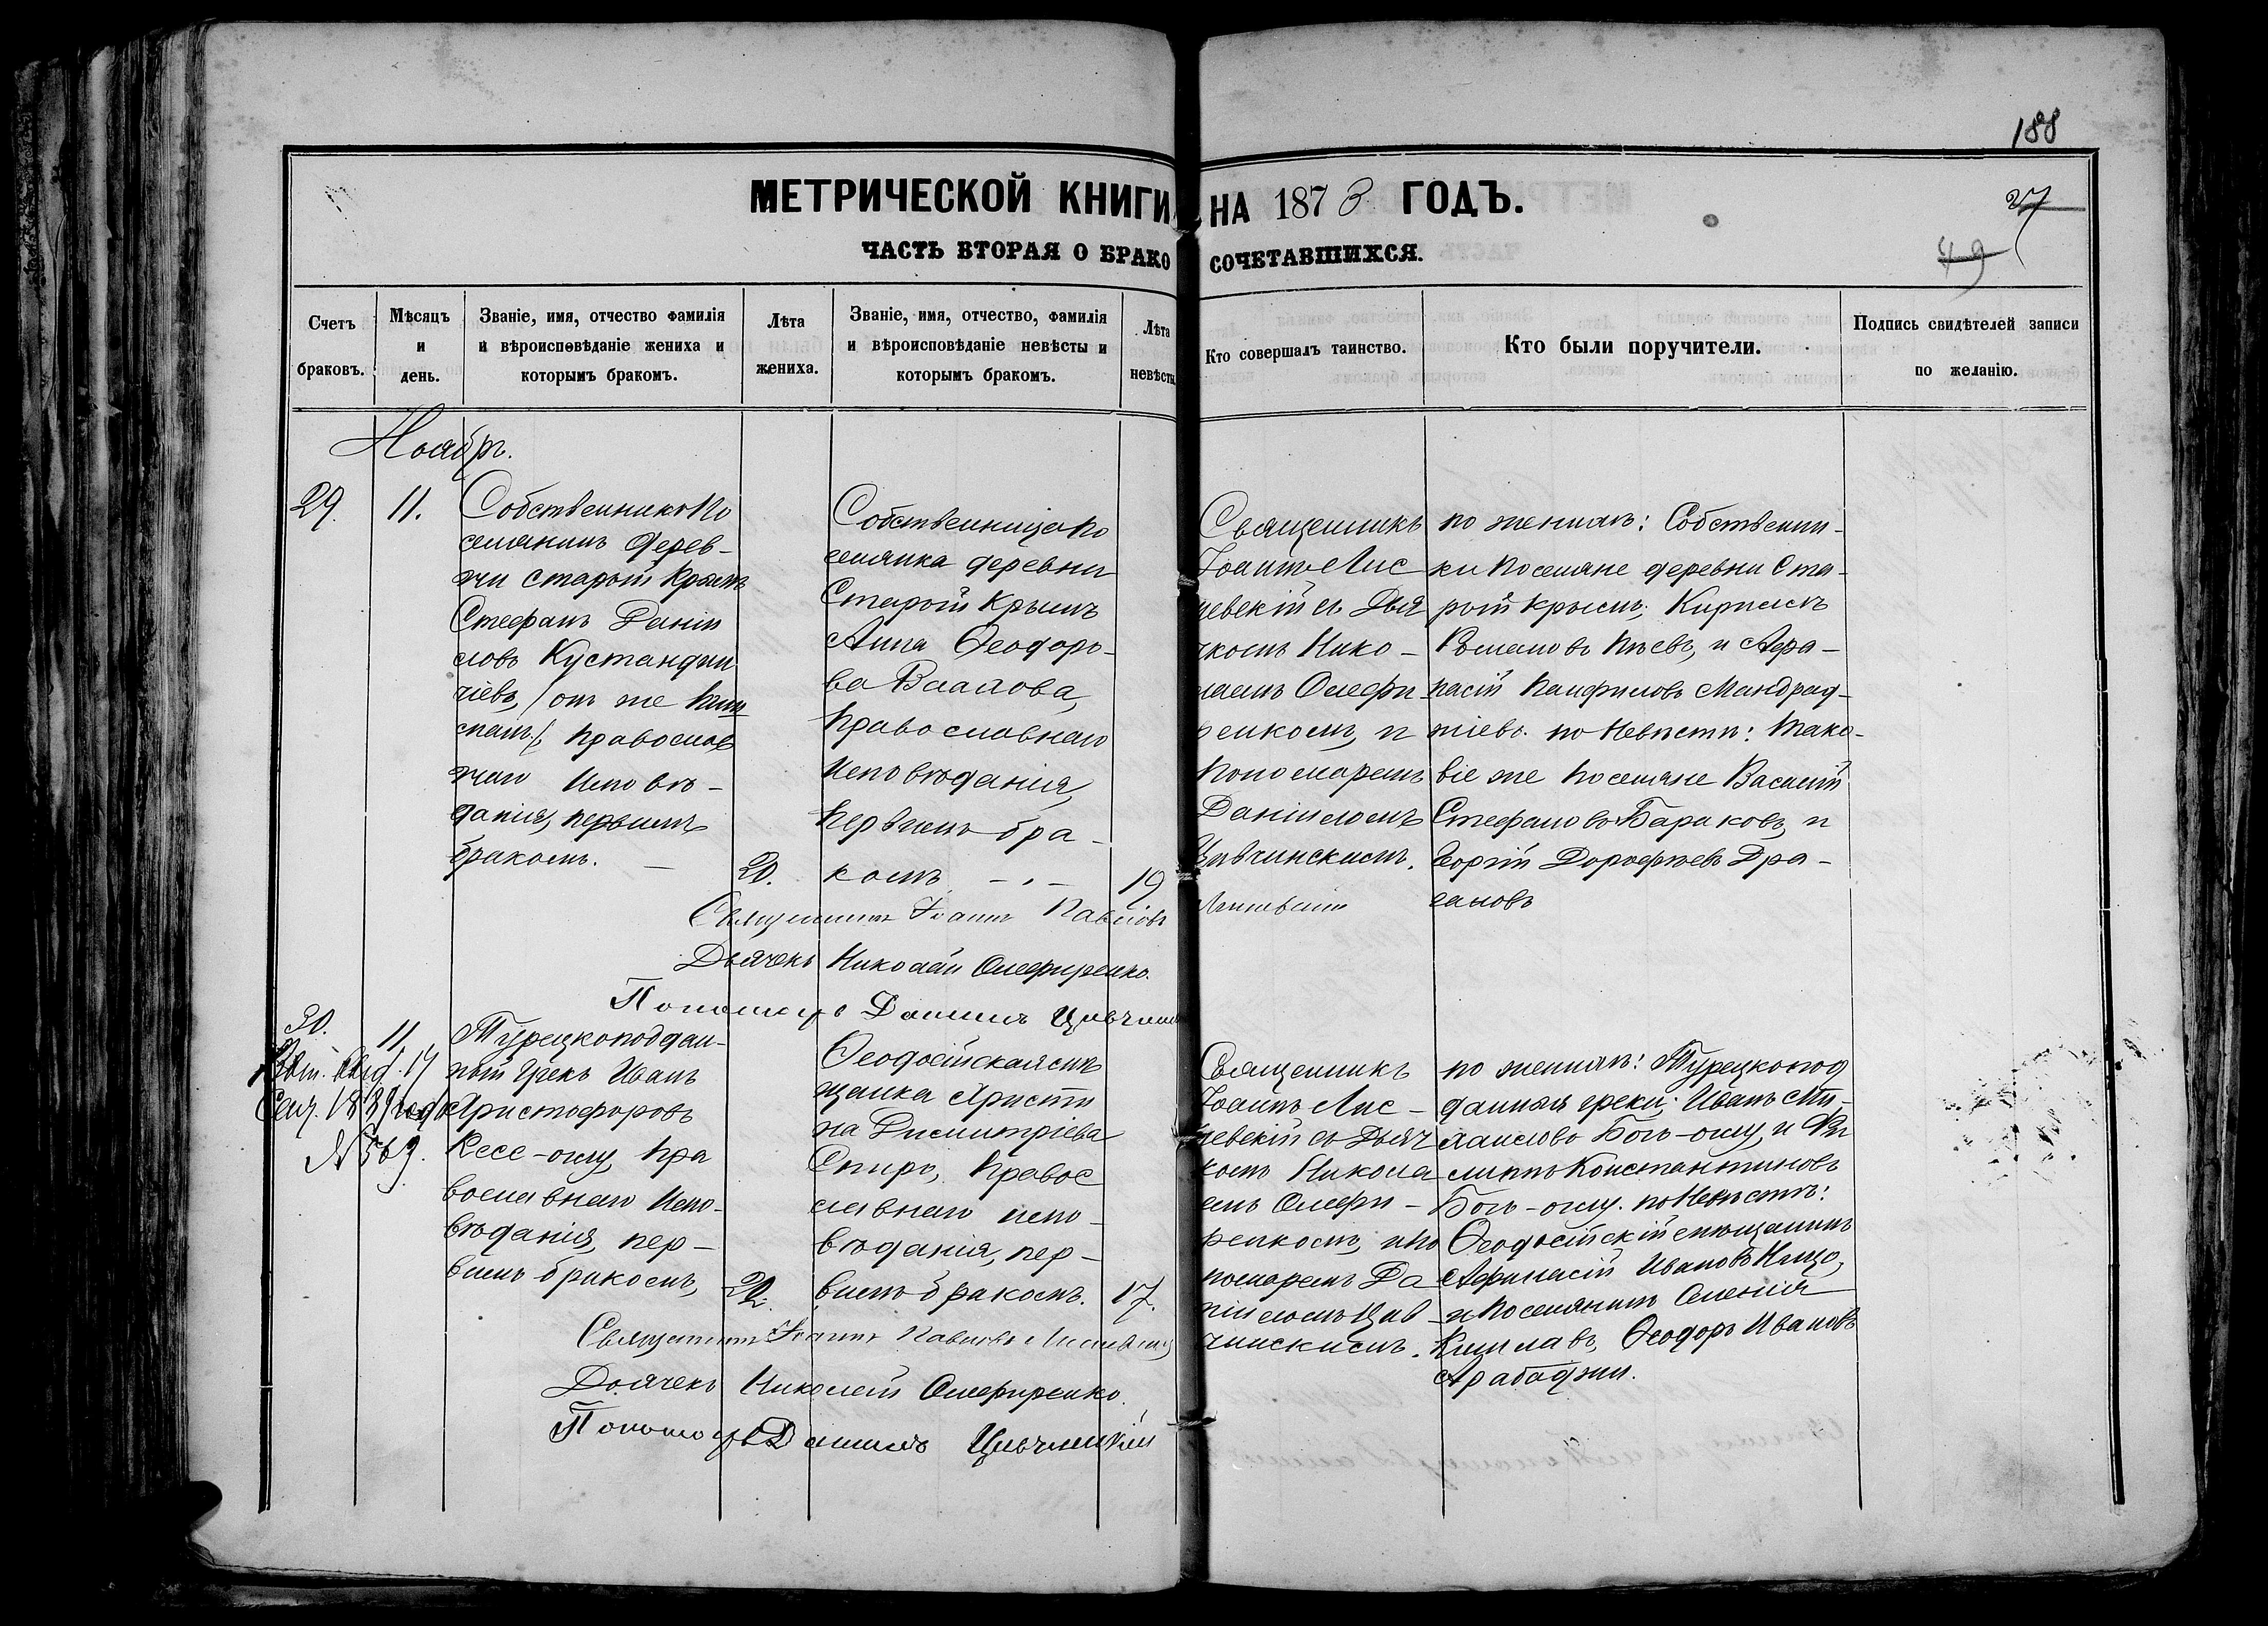 188
МЕТРИЧЕСКОЙ КНИГИ НА 1873 ГОДЪ.
27
49
ЧАСТЬ ВТОРАЯ О БРАКОСОЧЕТАВШИХСЯ.
Счетъ браковъ.
Мѣсяцъ и день.
Званіе, имя, отчество фамилія и вѣроисповѣданіе жениха и которымъ бракомъ.
Лѣта жениха.
Званіе, имя, отчество, фамилія и вѣроисповѣданіе невѣсты и которымъ бракомъ.
Лѣта невѣсты
Кто совершалъ таинство.
Кто были поручители.
Подпись свидѣтелей записи по желанію.
Ноябрь.
29.
11.
Собственникъ По
селянинъ Дерев-
ни Старый Крымъ
Стефанъ Даніи
ловъ Кустанджи
чіевъ, /онъ же
православ
наго Исповѣ-
данія, первымъ
бракомъ.
20.
Собственница По
селянка деревни
Старый Крымъ
Анна Ѳеодоро-
ва
Православнаго
Исповѣданія,
первымъ бра-
комъ
19
Священникъ
Іоаннъ Лис
невскій съ Дья
чкомъ Нико-
лаемъ Олефи
ренкомъ, и
Пономаремъ
Даніиломъ
Цивчинскимъ.
по женихѣ: Собственни-
ки Поселяне деревни Ста-
рый Крымъ;
и Афа-
насій Панфиловъ
по Невѣстѣ: Тако-
віе же поселяне Василій
Стефановъ Бараковъ, и
Георгій Дорофѣевъ Дра-
гановъ
Священникъ Іоаннъ Павловъ Лисневскій
Дьячекъ Николай Олефиренко.
Пономарь Даніилъ
30.
11.
17
Сен. 1889 года
№ 569.
Турецкоподдан-
ный Грекъ Иванъ
Христофоровъ
Кесе-оглу, Пра
вославнаго Испо-
вѣданія, пер-
вымъ бракомъ,
22.
Ѳеодосійская мѣ
щанка Христи
на Димитріева
Спиро, Правос
лавнаго испо-
вѣданія, пер-
вымъ бракомъ.
17.
Священникъ
Іоаннъ Лис-
невскій съ Дьяч
комъ Никола
емъ Олефи-
ренкомъ, и По
номаремъ Да
ніиломъ Цив
чинскимъ.
по женихѣ: Турецкопод
данныя греки; Иванъ Ми-
хаиловъ Богъ-оглу, и Фи
липпъ Константиновъ
Богъ-оглу. по Невѣстѣ:
Ѳеодосійскій мѣщанинъ
Афанасій Ивановъ
и Поселянинъ Селенія
Кишлавъ, Ѳеодоръ Ивановъ
Арабаджи.
Священникъ Іоаннъ Павловъ Лисневскій
Дьячекъ Николай Олефиренко.
Пономарь Даніилъ Цивчинскій